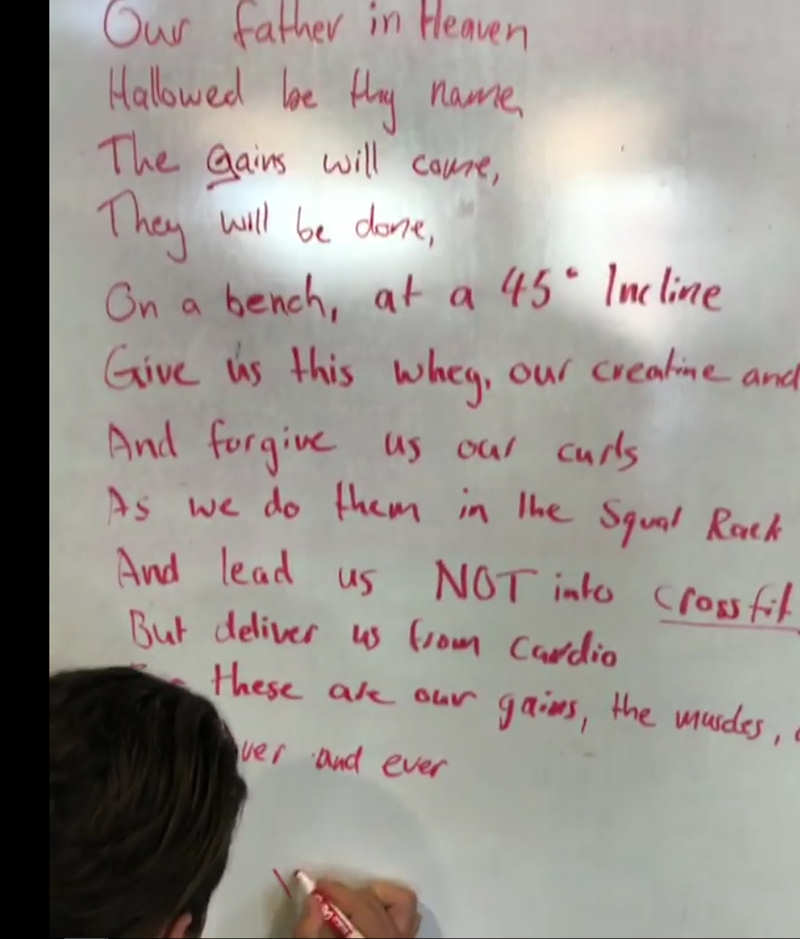 Our father in Heaven
Hallowed be thy name,
The gains will come,
They will be done,
On a bench, at a 45° Incline
Give us this whey, our creatine and
And forgive us our curls
As we do them in the Squat Rack
And lead us NOT into crossfit
But deliver us from Cardio
these are our gains, the muscles,
and ever